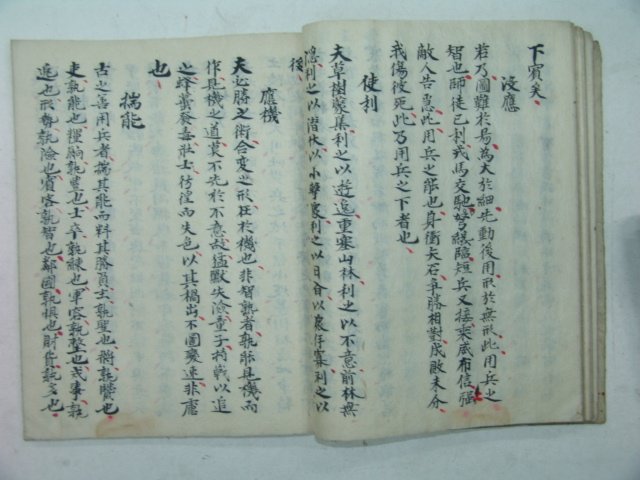 下賓矣
沒應
若乃圖難於易為大於細先動後用形於無形此用兵之
智也師徒已列戎馬交馳弩纔臨短兵又接乘威布信強
敵人告急此用兵之能也身衝矢石爭勝相對成敗未分
我傷彼死此乃用兵之下者也
使利
夫草樹叢集利之以遊逸重塞山林利之以不意前林無
隱利之以潛伏以小擊衆利之以日暮以衆存寡利之以
後
應機
夫必勝之術合變之形在於機也非智孰者孰能見機而
作見機之道莫不先於不意故猛獸失險童子持戟以追
之蜂蠆發毒壯士彷徨而失色以其禍出不圖衆速非慮
也
揣能
古之善用兵者揣其能而料其勝負主孰聖也將孰賢也
吏孰能也糧餉孰豊也士卒孰練也軍容孰整也戎事孰
逸也形勢孰險也賓客孰智也鄰國孰懼也財貨孰多也